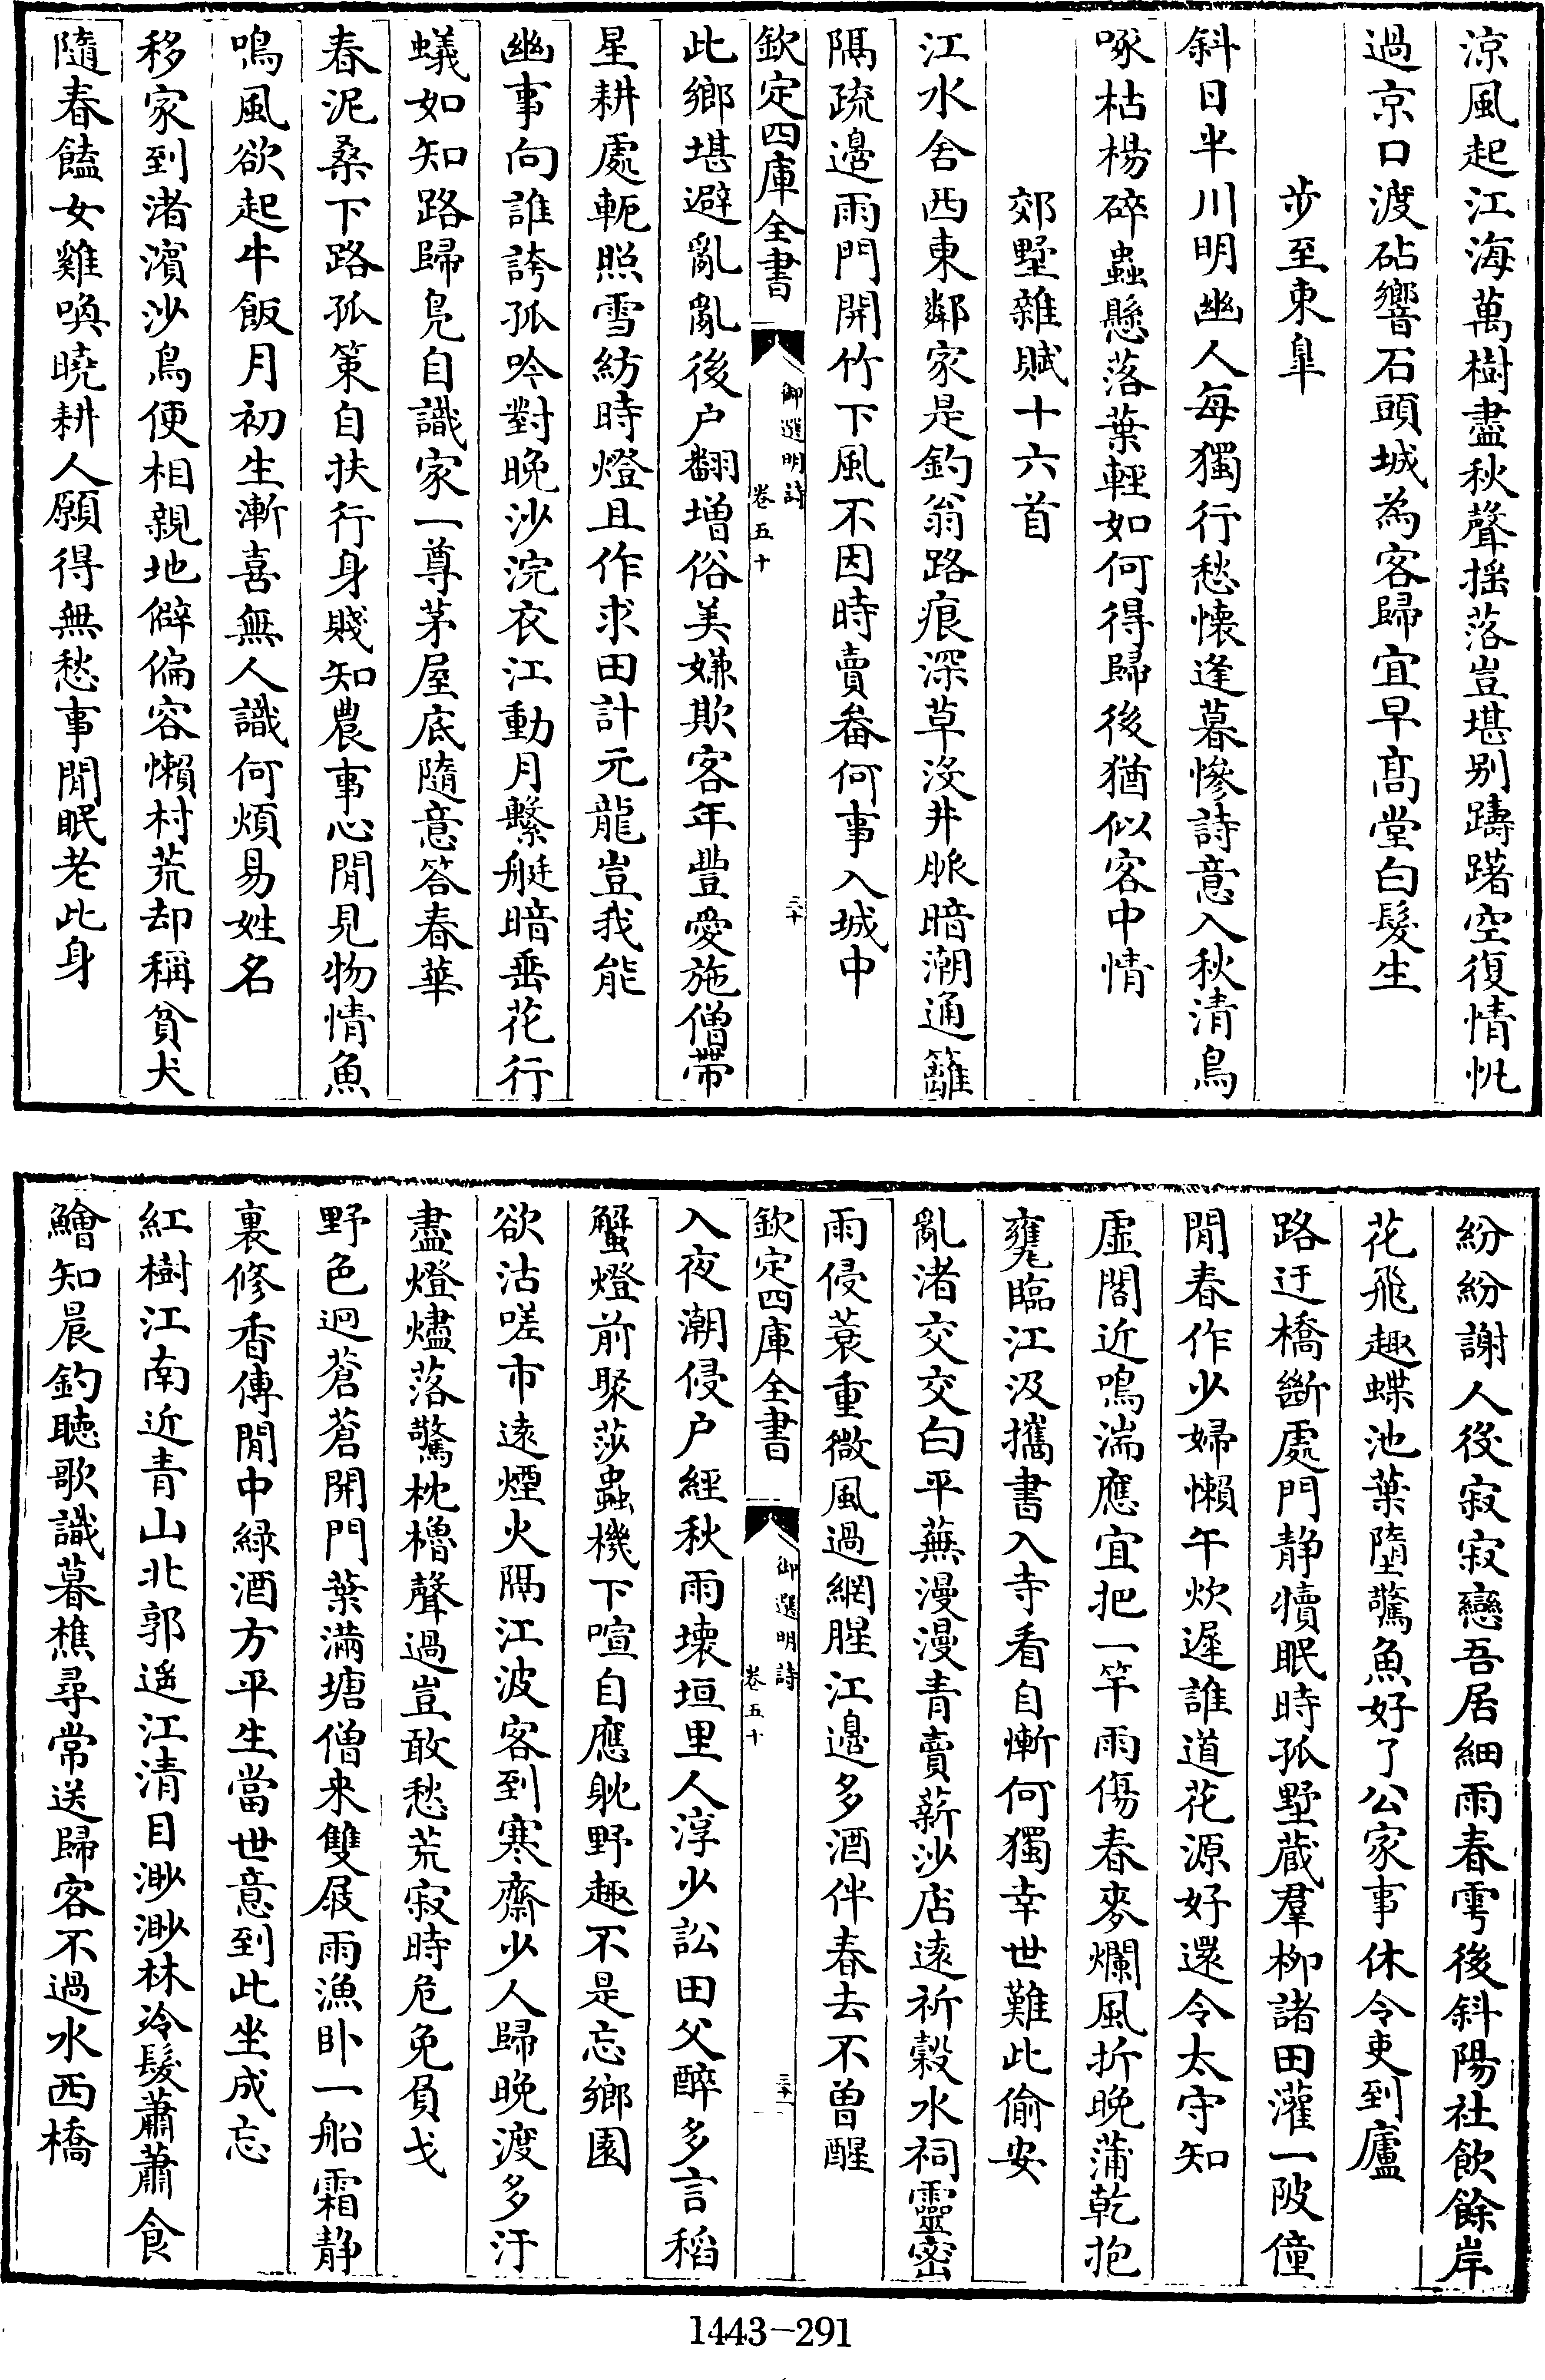 涼風起江海萬樹盡秋聲揺落豈堪别躊躇空復情帆
過京口渡砧響石頭城為客歸宜早髙堂白髮生
步至東臯
斜日半川明幽人每獨行愁懐逢暮慘詩意入秋清鳥
啄枯楊碎蟲懸落葉輕如何得歸後猶似客中情
郊墅雜賦十六首
江水舍西東鄰家是釣翁路痕深草沒井脈暗潮通籬
隔疏邉雨門開竹下風不因時賣畚何事入城中
欽定四庫全書
御選明詩
卷五十
三十
此鄉堪避亂亂後户翻増俗美嫌欺客年豐愛施僧帶
星耕處軛照雪紡時燈且作求田計元龍豈我能
幽事向誰誇孤吟對晚沙浣衣江動月繫艇暗垂花行
蟻如知路歸鳬自識家一尊茅屋底隨意答春華
春泥桑下路孤策自扶行身賤知農事心閒見物情魚
鳴風欲起牛飯月初生漸喜無人識何煩易姓名
移家到渚濱沙鳥便相親地僻偏容懶村荒却稱貧犬
隨春饁女雞喚曉耕人願得無愁事閒眠老此身
紛紛謝人後寂寂戀吾居細雨春雩後斜陽社飲餘岸
花飛趣蝶池葉墮驚魚好了公家事休令吏到廬
路迂橋斷處門静犢眠時孤墅蔵羣柳諸田灌一陂僮
閒春作少婦懶午炊遲誰道花源好還令太守知
虚閣近鳴湍應宜把一竿雨傷春麥爛風折晚蒲乾抱
甕臨江汲攜書入寺看自慚何獨幸世難此偷安
亂渚交交白平蕪漫漫青賣薪沙店逺祈穀水祠靈密
雨侵蓑重微風過網腥江邉多酒伴春去不曽醒
欽定四庫全書
御選明詩
卷五十
三十一
入夜潮侵户經秋雨壊垣里人淳少訟田父醉多言稻
蟹燈前聚莎蟲機下喧自應躭野趣不是忘鄉園
欲沽嗟市逺煙火隔江波客到寒齋少人歸晚渡多汙
盡燈燼落驚枕櫓聲過豈敢愁荒寂時危免負戈
野色迥蒼蒼開門葉滿塘僧来雙屐雨漁卧一船霜静
裏修香傳閒中綠酒方平生當世意到此坐成忘
紅樹江南近青山北郭遥江清目渺渺林冷髮蕭蕭食
鱠知晨釣聴歌識暮樵尋常送歸客不過水西橋
1443-291